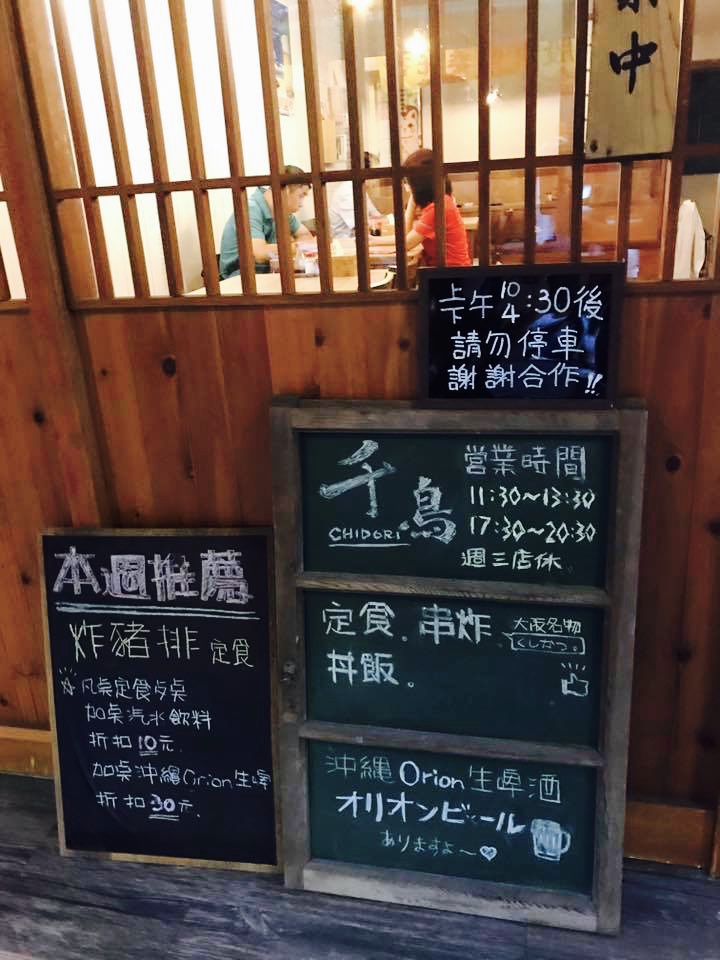 中
上下午10 4:30後
請勿停車
謝謝合作!!
千鳥
CHIDORI
営業時間
11:30~13:30
17:30~20:30
週三店休.
定食.串炸
丼飯。
大阪名物
くしかつ。
沖縄Orion生啤酒
オリオンビール
ありますよ~
本週推薦
炸豬排定食
凡点定食
加点汽水飲料
折扣10元.
加点沖縄Orion生啤
折扣30元.